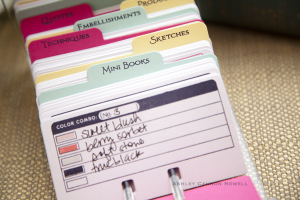 PRODUC
QUOTES
EMBELLISHMENTS
TECHNIQUES
SKETCHES
MINI BOOKS
COLOR COMBO: No. 3
sweet blush
berry sorbet
soft stone
true black
ASHLEY CANNON NEWELL